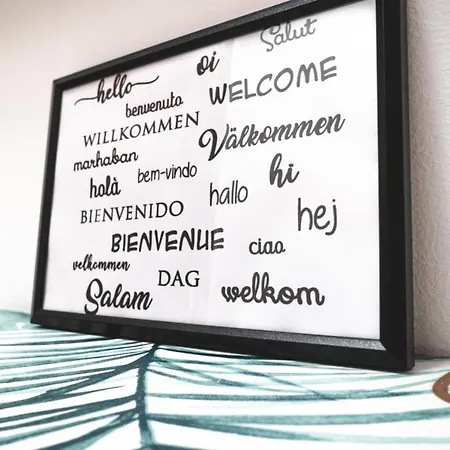 Salut
hello oi
benvenuto WELCOME
WILLKOMMEN Välkommen
marhaban
bem-vindo hi
holà hallo
BIENVENIDO hej
BIENVENUE ciao
velkommen
DAG
Salam welkom